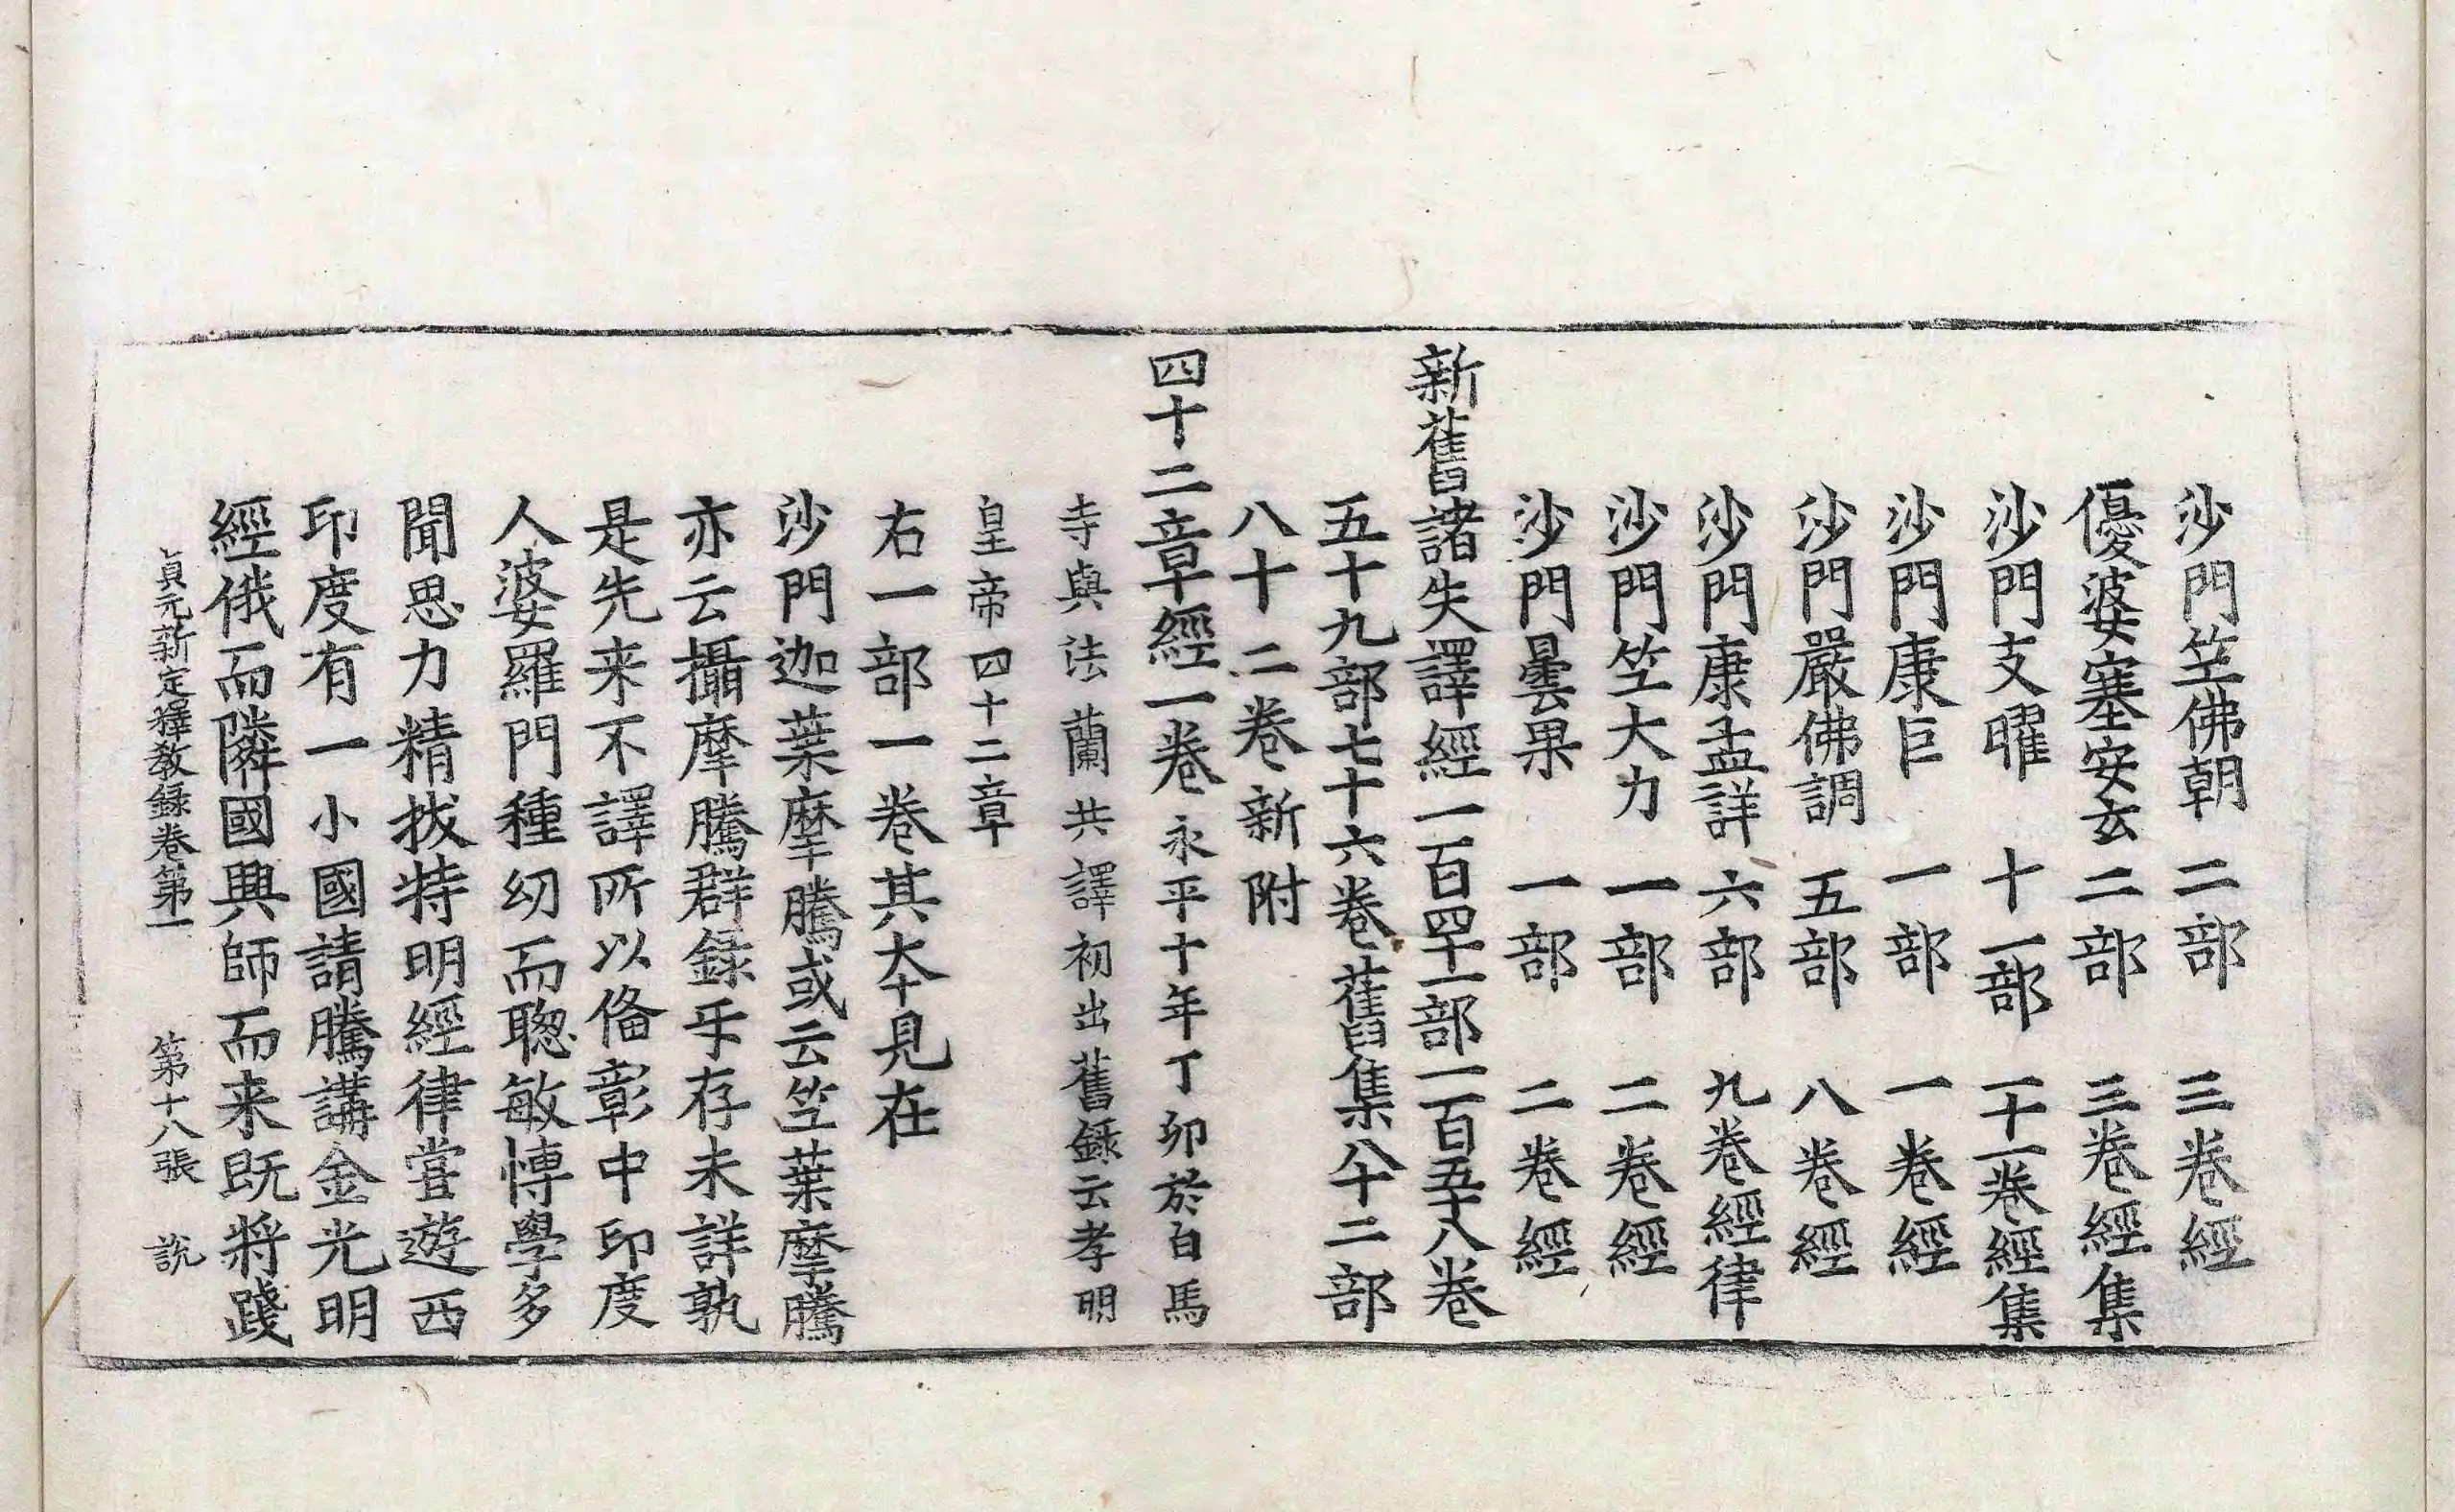 沙門笁佛朔 二部 三卷經
優婆塞安玄 二部 三卷經集
沙門支曜 十一部 一十一卷經集
沙門康巨 一部 一卷經
沙門嚴佛調 五部 八卷經
沙門康孟詳 六部 九卷經律
沙門笁大力 一部 二卷經
沙門曇果 一部 二卷經
新舊諸失譯經一百四十一部一百五十八卷
五十九部七十六卷舊集八十二部
八十二卷新附
四十二章經一卷永平十年丁卯於白馬
寺與法蘭共譯初出舊錄云孝明
皇帝四十二章
右一部一卷其夲見在
沙門迦葉摩騰或云笁葉摩騰
亦云攝摩騰群録手存未詳孰
是先来不譯所以俻彰中印度
人婆羅門種幼而聦敏博學多
聞思力精拔特明經律嘗遊西
印度有一小國請騰講金光明
經俄而隣國興師而来既將踐
貞元新定釋教録卷第一 第十八張 說